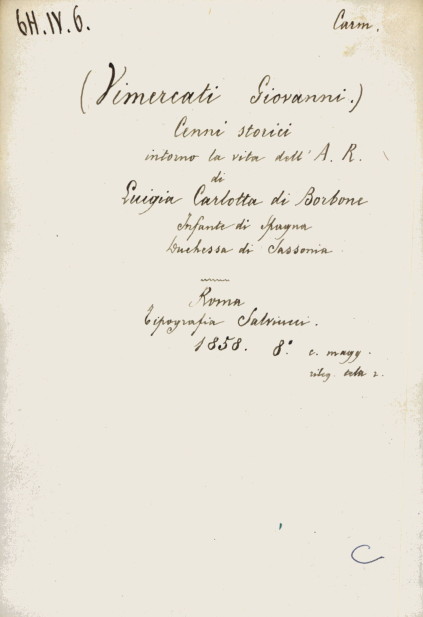 6H.IV.6.
Carm.
(Vimercati Giovanni.)
Cenni storici
intorno la vita dell' A. R.
di
Luigia Carlotta di Borbone
Infante di Spagna
Duchessa di Sassonia
Roma
Tipografia Salviucci.
1858. 8.° c. magg.
C